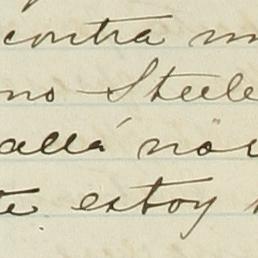 contra
no Steele
allá
te estoy